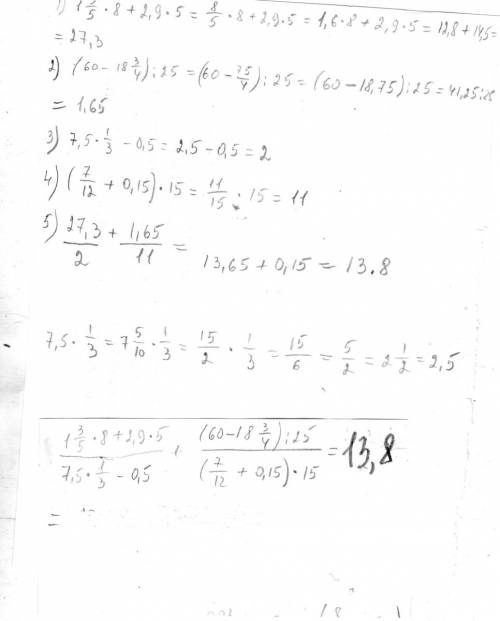 1) 1 3/5 · 8 + 2,9 · 5 = 8/5 · 8 + 2,9 · 5 = 1,6 · 8 + 2,9 · 5 = 12,8 + 14,5 =
= 27,3
2) (60 - 18 3/4) : 25 = (60 - 75/4) : 25 = (60 - 18,75) : 25 = 41,25 : 25
= 1,65
3) 7,5 · 1/3 - 0,5 = 2,5 - 0,5 = 2
4) (7/12 + 0,15) · 15 = 11/15 · 15 = 11
5) 27,3/2 + 1,65/11 = 13,65 + 0,15 = 13.8
7,5 · 1/3 = 7 5/10 · 1/3 = 15/2 · 1/3 = 15/6 = 5/2 = 2 1/2 = 2,5
(1 3/5 · 8 + 2,9 · 5)/(7,5 · 1/3 - 0,5) + ((60 - 18 3/4) : 25)/((7/12 + 0,15) · 15) = 13,8
=